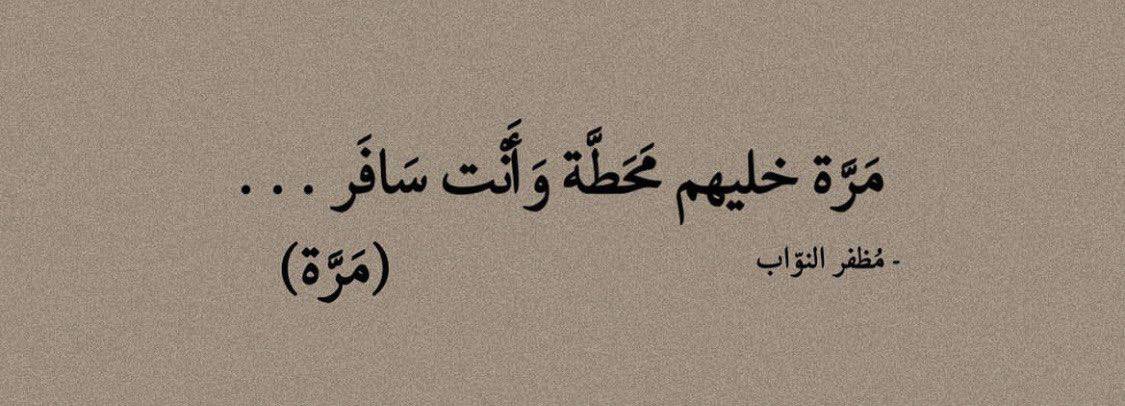 مَرَّة خليهم مَحَطَّة وَأَنْت سَافَر . . .
- مُظفر النوّاب
(مَرَّة)